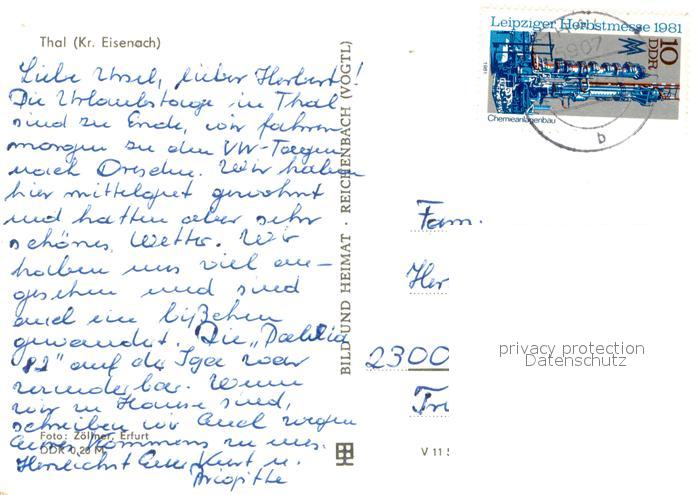 Thal (Kr. Eisenach)
Liebe Ursel, lieber Herbert!
Die Urlaubstage in Thal
sind zu Ende, wir fahren
morgen zu den VW-Tagen
nach Dresden. Wir haben
hier mittelgut gewohnt
und hatten aber sehr
schönes Wetter. Wir
haben uns viel an-
gesehen und sind
auch ein bißchen
gewandert. Die "Dahlia
81" auf der Iga war
wunderbar. Wenn
wir zu Hause sind,
schreiben wir Euch wegen
Eures Kommens zu uns.
Herzlichst Euer Kurt u.
Brigitte
Foto: Zöllner, Erfurt
DDR 0,20 M
BILD UND HEIMAT · REICHENBACH (VOGTL)
V 11
Leipziger Herbstmesse 1981
10
DDR
1981
Chemieanlagenbau
5907
b
Fam.
Her
2300
privacy protection
Datenschutz